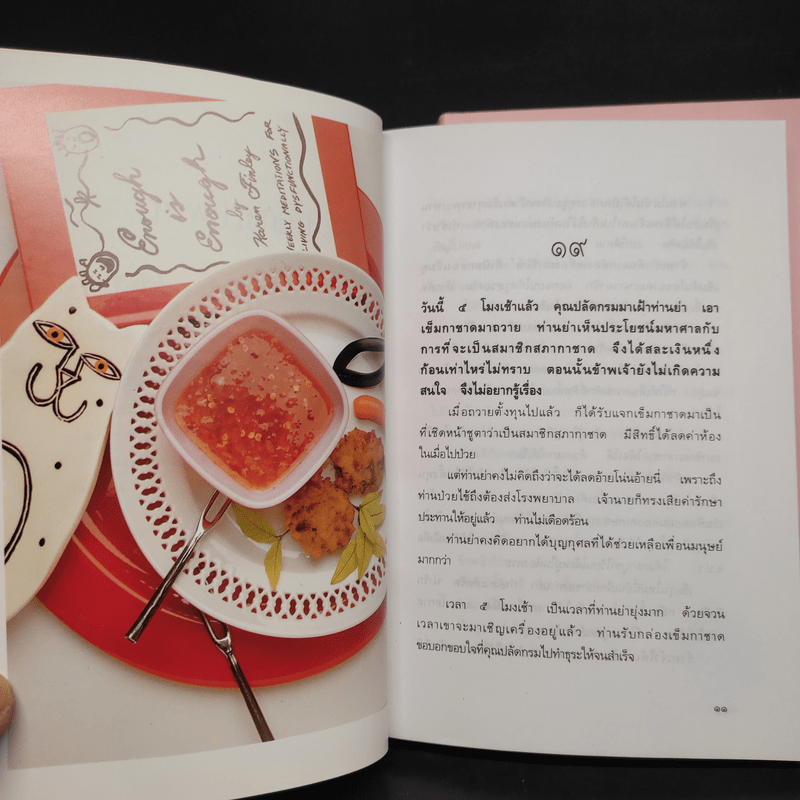 Enough
is
Enough
by
Karen Finley
WEEKLY MEDITATIONS FOR
LIVING DYSFUNCTIONALLY
๑๙
วันนี้ ๕ โมงเช้าแล้ว คุณปลัดกรมมาเฝ้าท่านย่า เอา
เข็มกาชาดมาถวาย ท่านย่าเห็นประโยชน์มหาศาลกับ
การที่จะเป็นสมาชิกสภากาชาด จึงได้สละเงินหนึ่ง
ก้อนเท่าไหร่ไม่ทราบ ตอนนั้นข้าพเจ้ายังไม่เกิดความ
สนใจ จึงไม่อยากรู้เรื่อง
เมื่อถวายตั้งทุนไปแล้ว ก็ได้รับแจกเข็มกาชาดมาเป็น
ที่เชิดหน้าชูตาว่าเป็นสมาชิกสภากาชาด มีสิทธิ์ได้ลดค่าห้อง
ในเมื่อไปป่วย
แต่ท่านย่าคงไม่คิดถึงว่าจะได้ลดอ้ายโน่นอ้ายนี่ เพราะถึง
ท่านป่วยไข้ถึงต้องส่งโรงพยาบาล เจ้านายก็ทรงเสียค่ารักษา
ประทานให้อยู่แล้ว ท่านไม่เดือดร้อน
ท่านย่าคงคิดอยากได้บุญกุศลที่ได้ช่วยเหลือเพื่อนมนุษย์
มากกว่า
เวลา ๕ โมงเช้า เป็นเวลาที่ท่านย่ายุ่งมาก ด้วยจวน
เวลาเขาจะมาเชิญเครื่องอยู่แล้ว ท่านรับกล่องเข็มกาชาด
ขอบอกขอบใจที่คุณปลัดกรมไปทำธุระให้จนสำเร็จ
๑๑